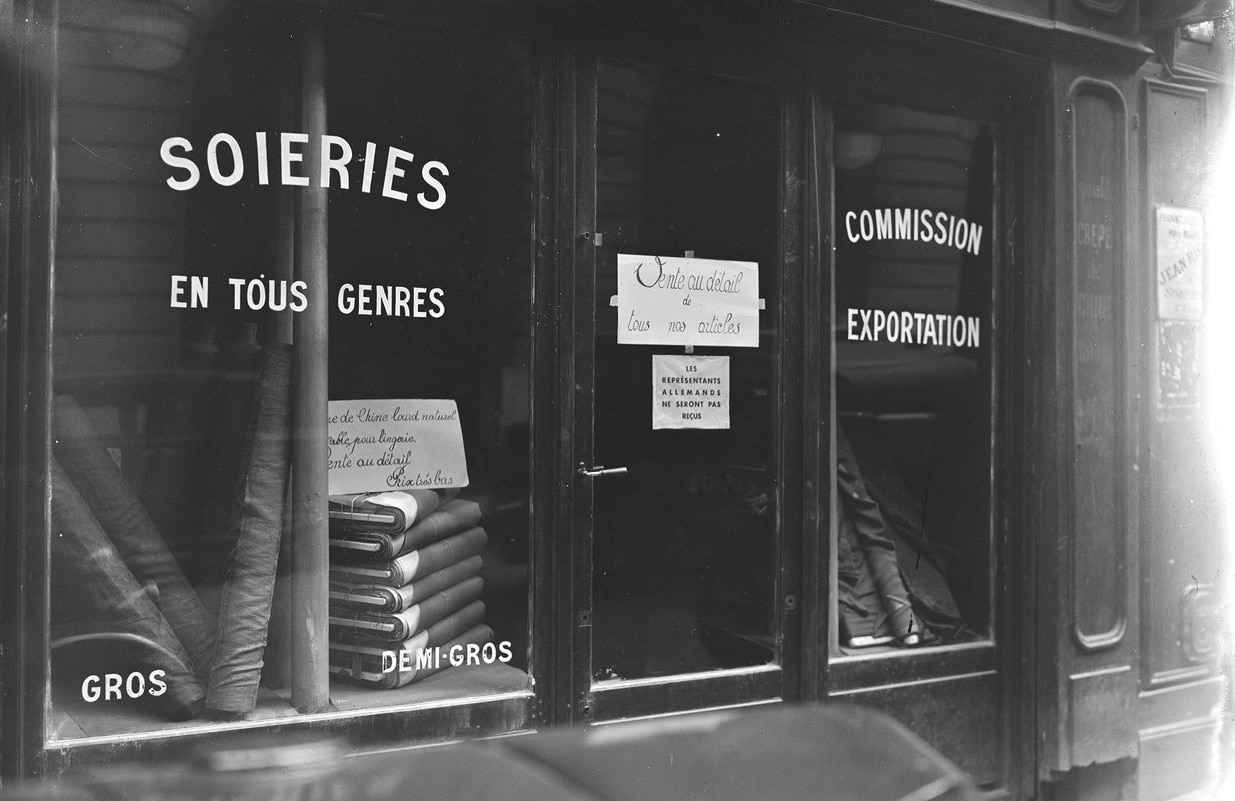 SOIERIES
EN TOUS GENRES
de Chine lourd naturel
pour lingerie.
au détail
Prix très bas
GROS
DEMI-GROS
Vente au détail
de
tous nos articles
LES
REPRÉSENTANTS
ALLEMANDS
NE SERONT PAS
REÇUS
COMMISSION
EXPORTATION
CREPE
JEAN